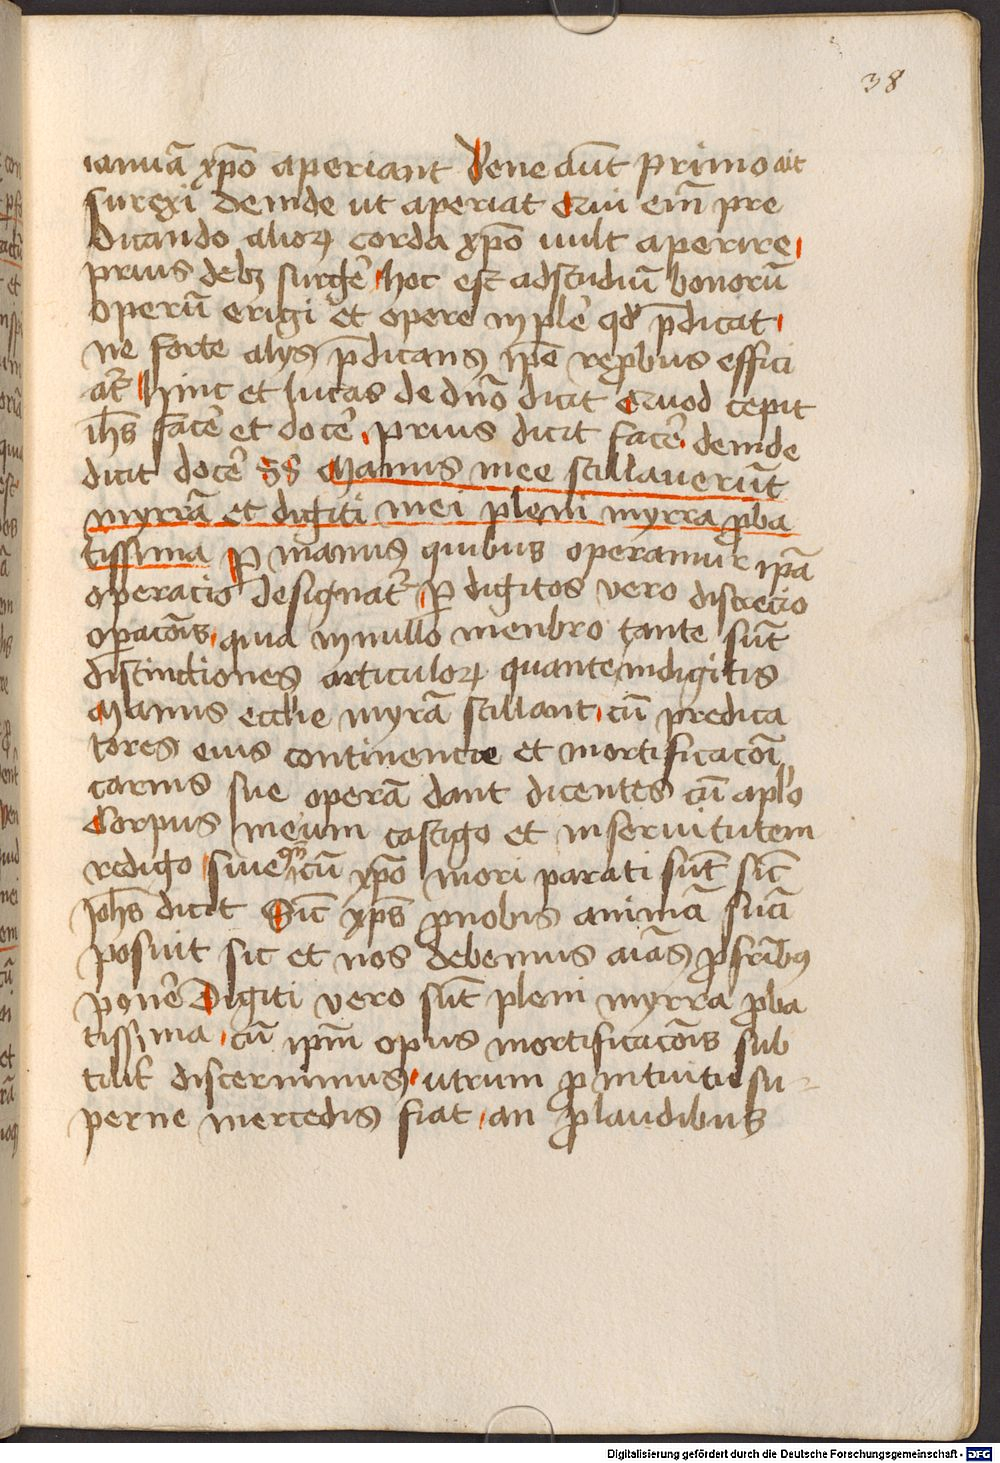 38
ianuā xp̄o aperiant Bene aūt primo ait
surexi deinde ut aperiat Qui em̄ pre
dicando alioꝝ corda xp̄o uult aperire
prius debꝫ surgēr hoc est adstudiū bonorū
operū erigi et opere inplēr qd̄ p̄dicat
ne forte alijs p̄dicans ip̄e reꝓbus effici
at᷑ hinc et lucas de dn̄o dicit Quod cepit
ih̄s facēr et docēr prius dicit facēr deinde
dicit docēr ss Manus mee stillauerūt
myrrā et digiti mei pleni myrra ꝓba
tissima ꝑ manus quibus operamur ip̄a
operacio designat᷑ ꝑ digitos vero discrecio
oꝑacōis quia innullo menbro tante sūt
distinctiones articuloꝝ quante indigitis
Manus ecclīe myrā stillant cū predica
tores eius continencie et mortificacōi
carnis sue operā dant dicentes cū aplō
Corpus meum castigo et inseruitutem
redigo siue qn̄ cū xp̄o mori parati sūt sic̄
Joh̄s dicit Sic̄ xp̄s ꝓnobis animā suā
posuit sic et nos debemus aīas ꝓfr̄ibus
ponēr Digiti vero sūt pleni myrra ꝓba
tissima cū ip̄m opus mortificacōis sub
tilit᷑ discernimus utrum ꝓ intuitu su-
perne mercedis fiat an ꝓlaudibus
Digitalisierung gefördert durch die Deutsche Forschungsgemeinschaft - DFG